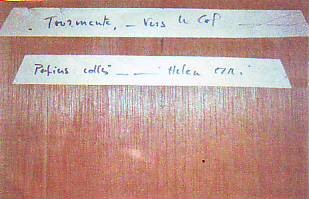 Tourmente. – Vers le Col
Papiers collés – Helen